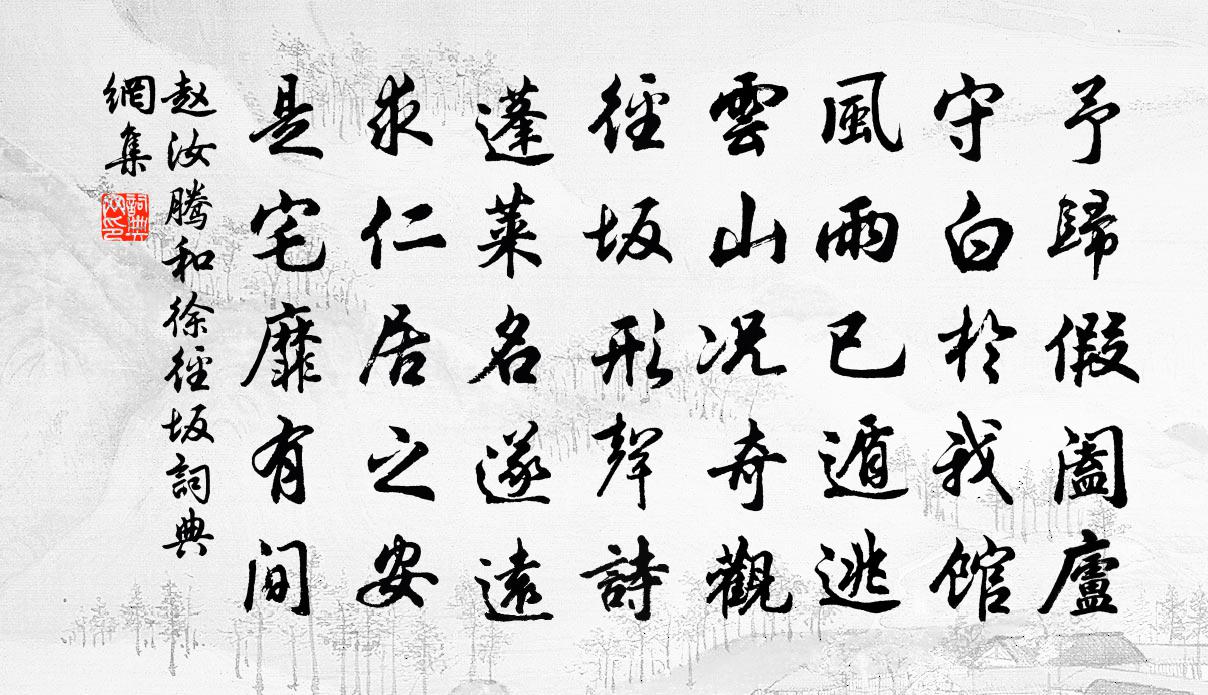 予歸假闔廬
守白於我館
風雨已遁逃
雲山况奇觀
徑坂形聲詩
蓬萊名遂遠
求仁居之安
是宅靡有間
赵汝腾和徐徑坂詞典
網集
詞典網印